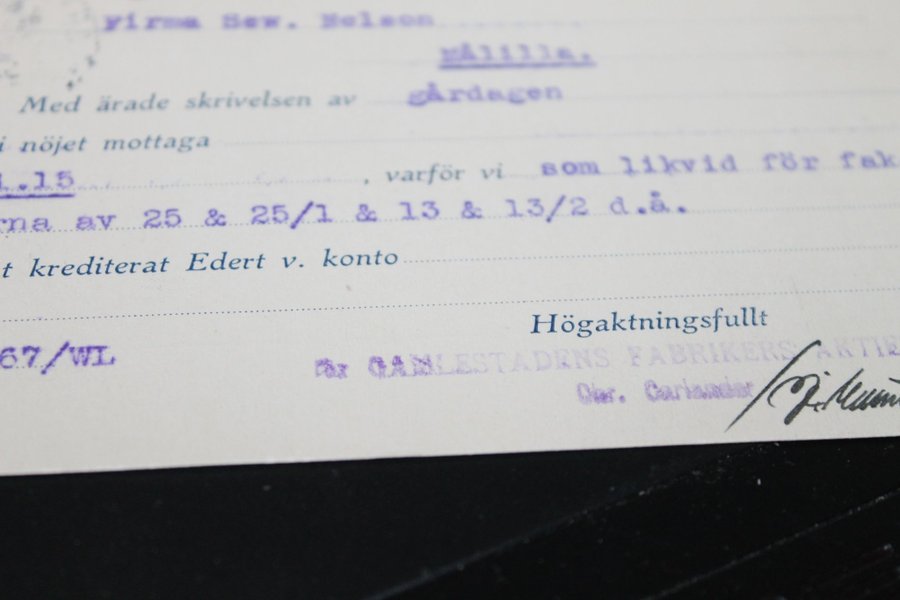 Firma Sew. Nelson
Målilla.
Med ärade skrivelsen av gårdagen
i nöjet mottaga
1.15 , varför vi som likvid för fak
rna av 25 & 25/1 & 13 & 13/2 d.å.
t krediterat Edert v. konto
Högaktningsfullt
67/WL
för GAMLESTADENS FABRIKERS AKTIE
Chr. Carlander